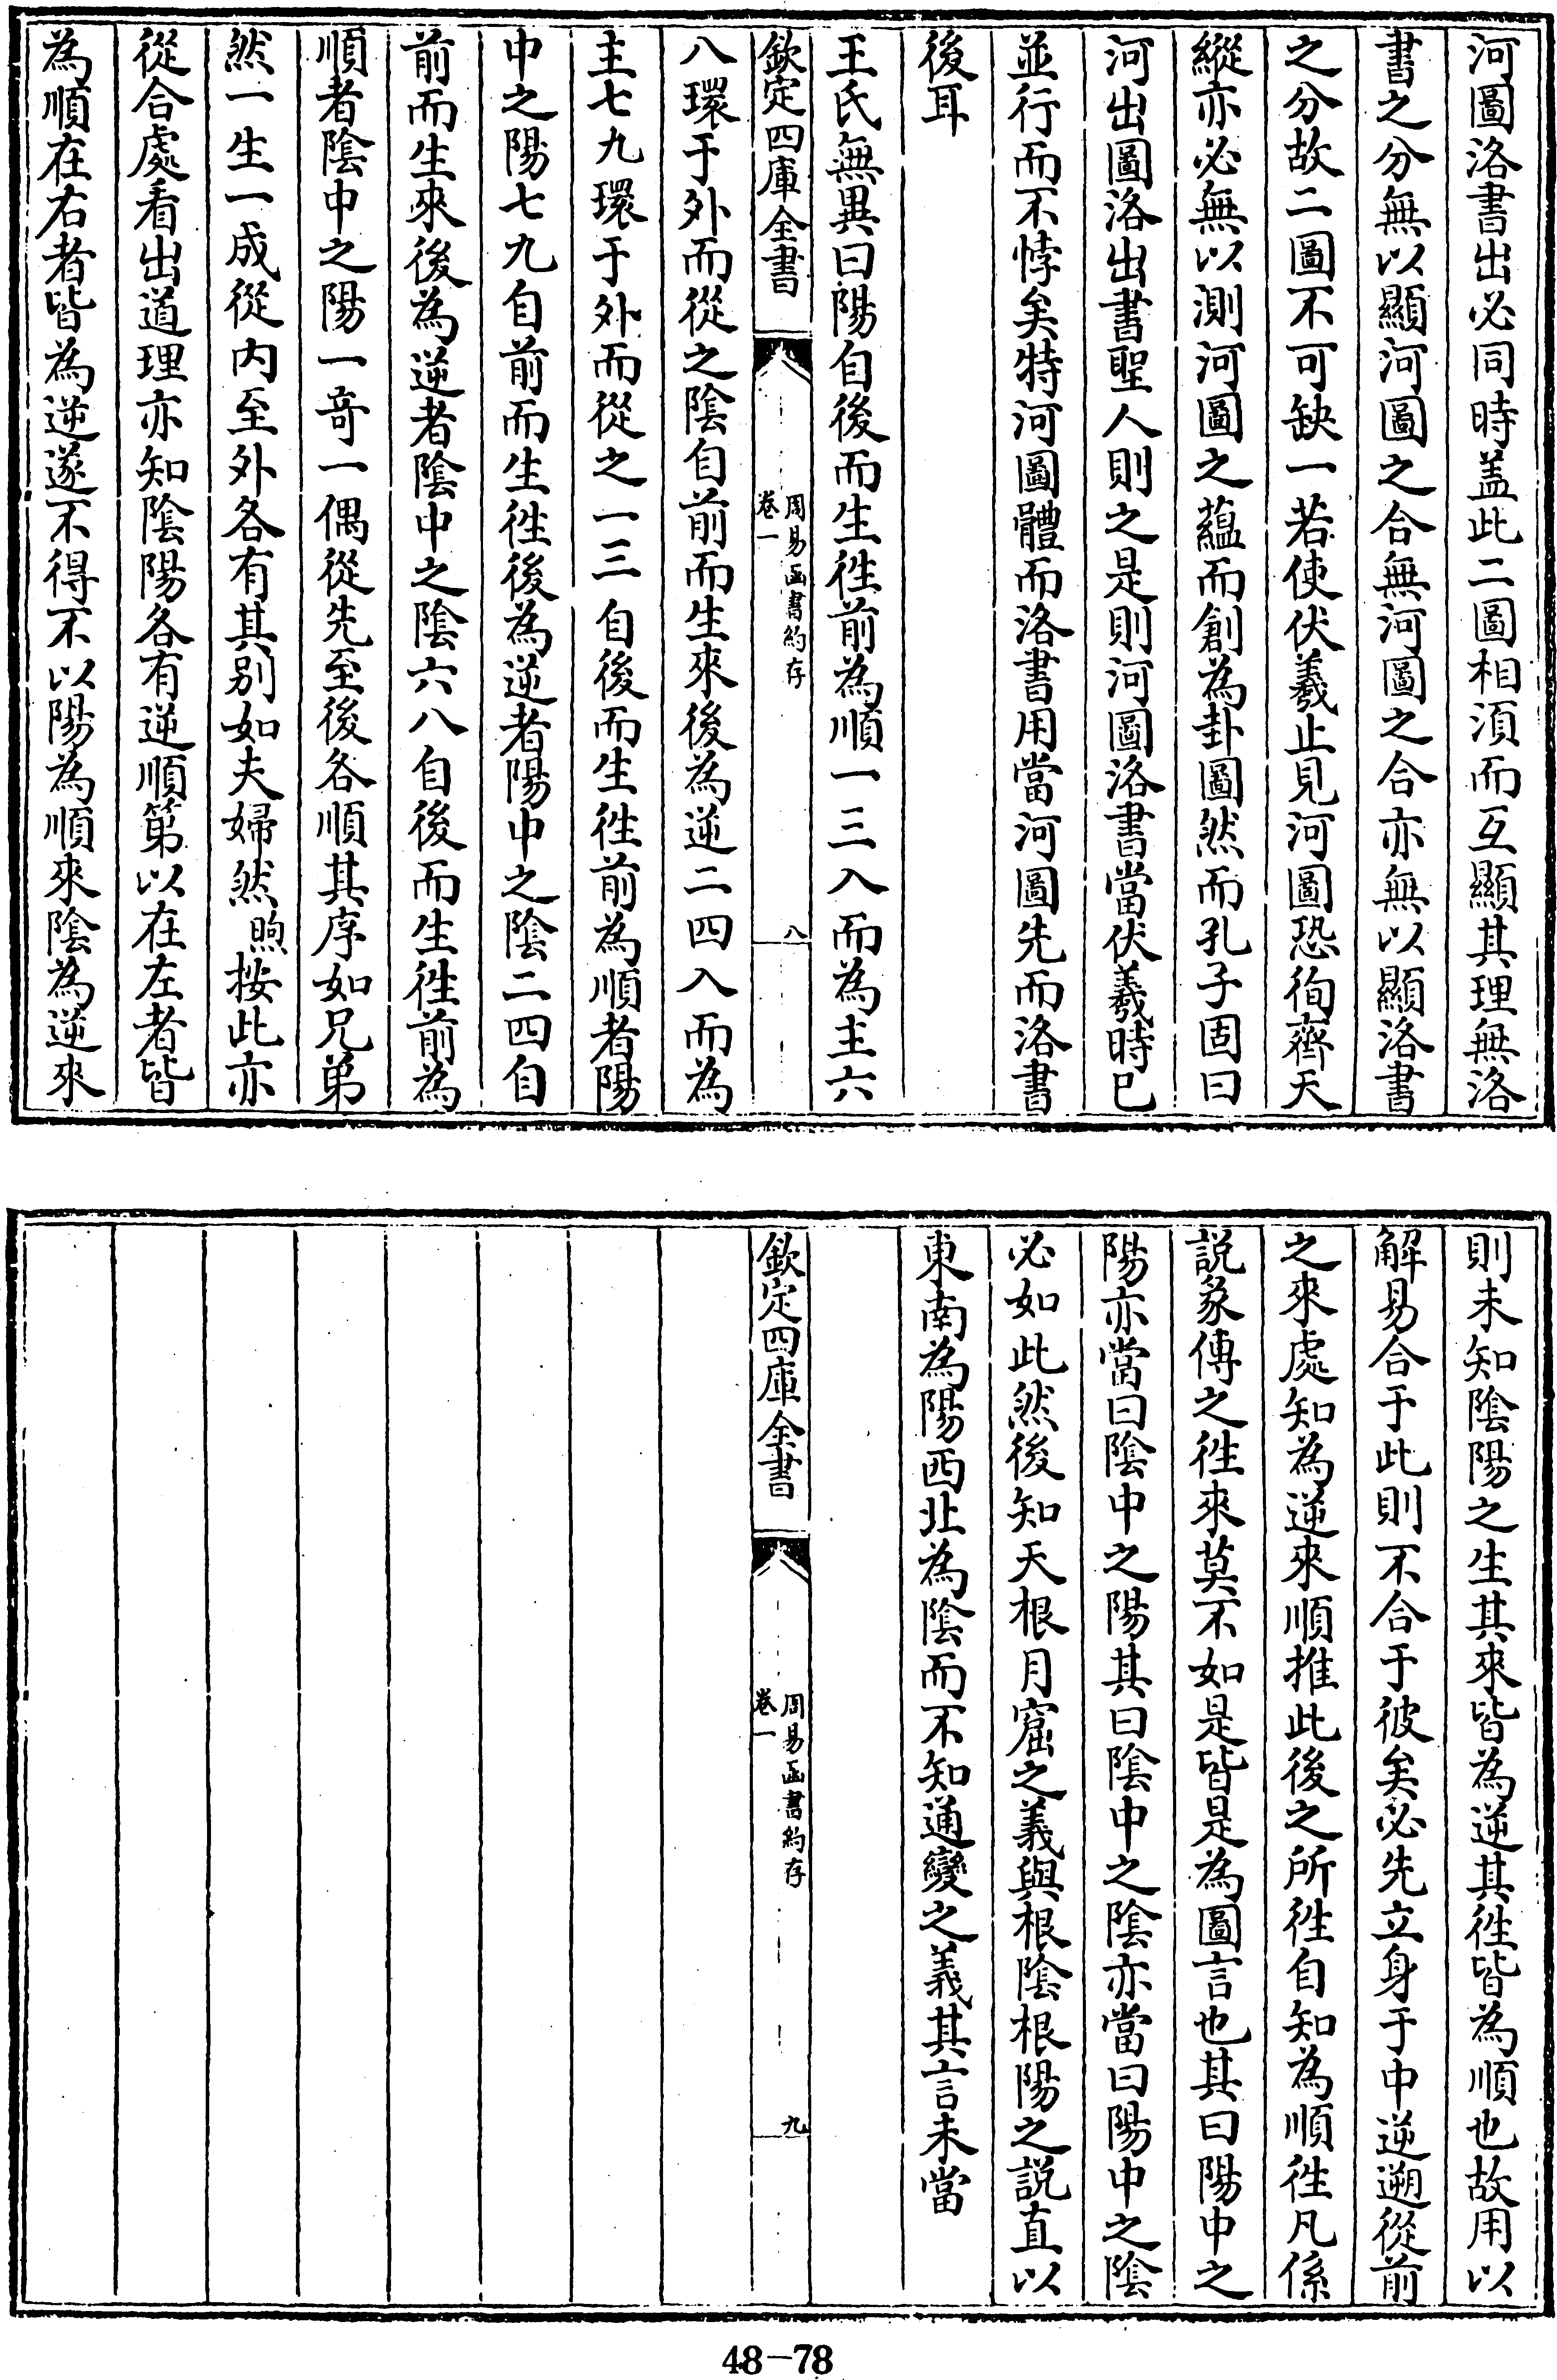 河圖洛書出必同時盖此二圖相須而互顯其理無洛
書之分無以顯河圖之合無河圖之合亦無以顯洛書
之分故二圖不可缺一若使伏羲止見河圖恐徇齊天
縱亦必無以測河圖之蘊而創為卦圖然而孔子固曰
河出圖洛出書聖人則之是則河圖洛書當伏羲時已
並行而不悖矣特河圖體而洛書用當河圖先而洛書
後耳
王氏無異曰陽自後而生徃前為順一三入而為主六
欽定四庫全書
周易函書約存
卷一
八
八環于外而從之陰自前而生來後為逆二四入而為
主七九環于外而從之一三自後而生徃前為順者陽
中之陽七九自前而生徃後為逆者陽中之陰二四自
前而生來後為逆者陰中之陰六八自後而生徃前為
順者陰中之陽一奇一偶從先至後各順其序如兄弟
然一生一成從内至外各有其别如夫婦然煦按此亦
從合處看出道理亦知陰陽各有逆順第以在左者皆
為順在右者皆為逆遂不得不以陽為順來陰為逆來
則未知陰陽之生其來皆為逆其徃皆為順也故用以
解易合于此則不合于彼矣必先立身于中逆遡從前
之來處知為逆來順推此後之所徃自知為順徃凡係
説彖傳之徃來莫不如是皆是為圖言也其曰陽中之
陽亦當曰陰中之陽其曰陰中之陰亦當曰陽中之陰
必如此然後知天根月窟之義與根陰根陽之説直以
東南為陽西北為陰而不知通變之義其言未當
欽定四庫全書
周易函書約存
卷一
九
48-78